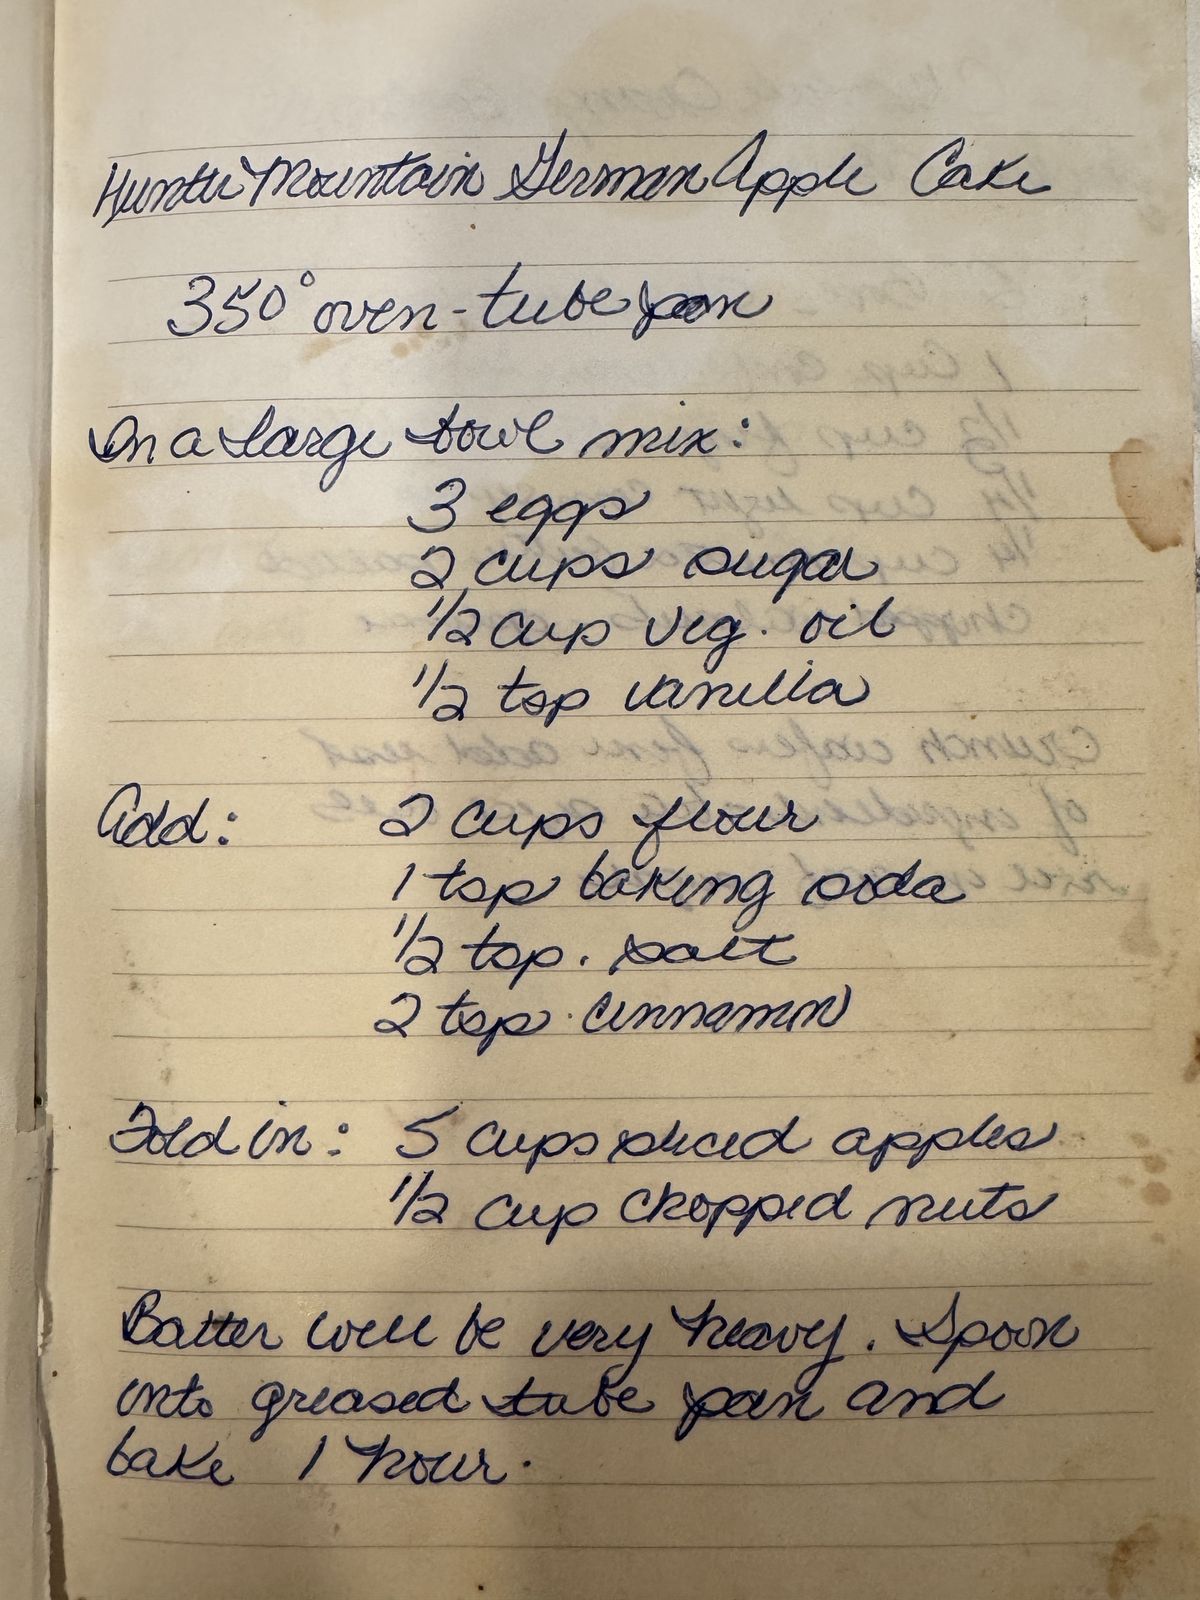 Hunter Mountain German Apple Cake
350° oven - tube pan
In a large bowl mix:
3 eggs
2 cups sugar
1/2 cup veg. oil
1/2 tsp vanilla
Add: 2 cups flour
1 tsp baking soda
1/2 tsp. salt
2 tsp. cinnamon
Fold in: 5 cups sliced apples
1/2 cup chopped nuts
Batter will be very heavy. Spoon
into greased tube pan and
bake 1 hour.